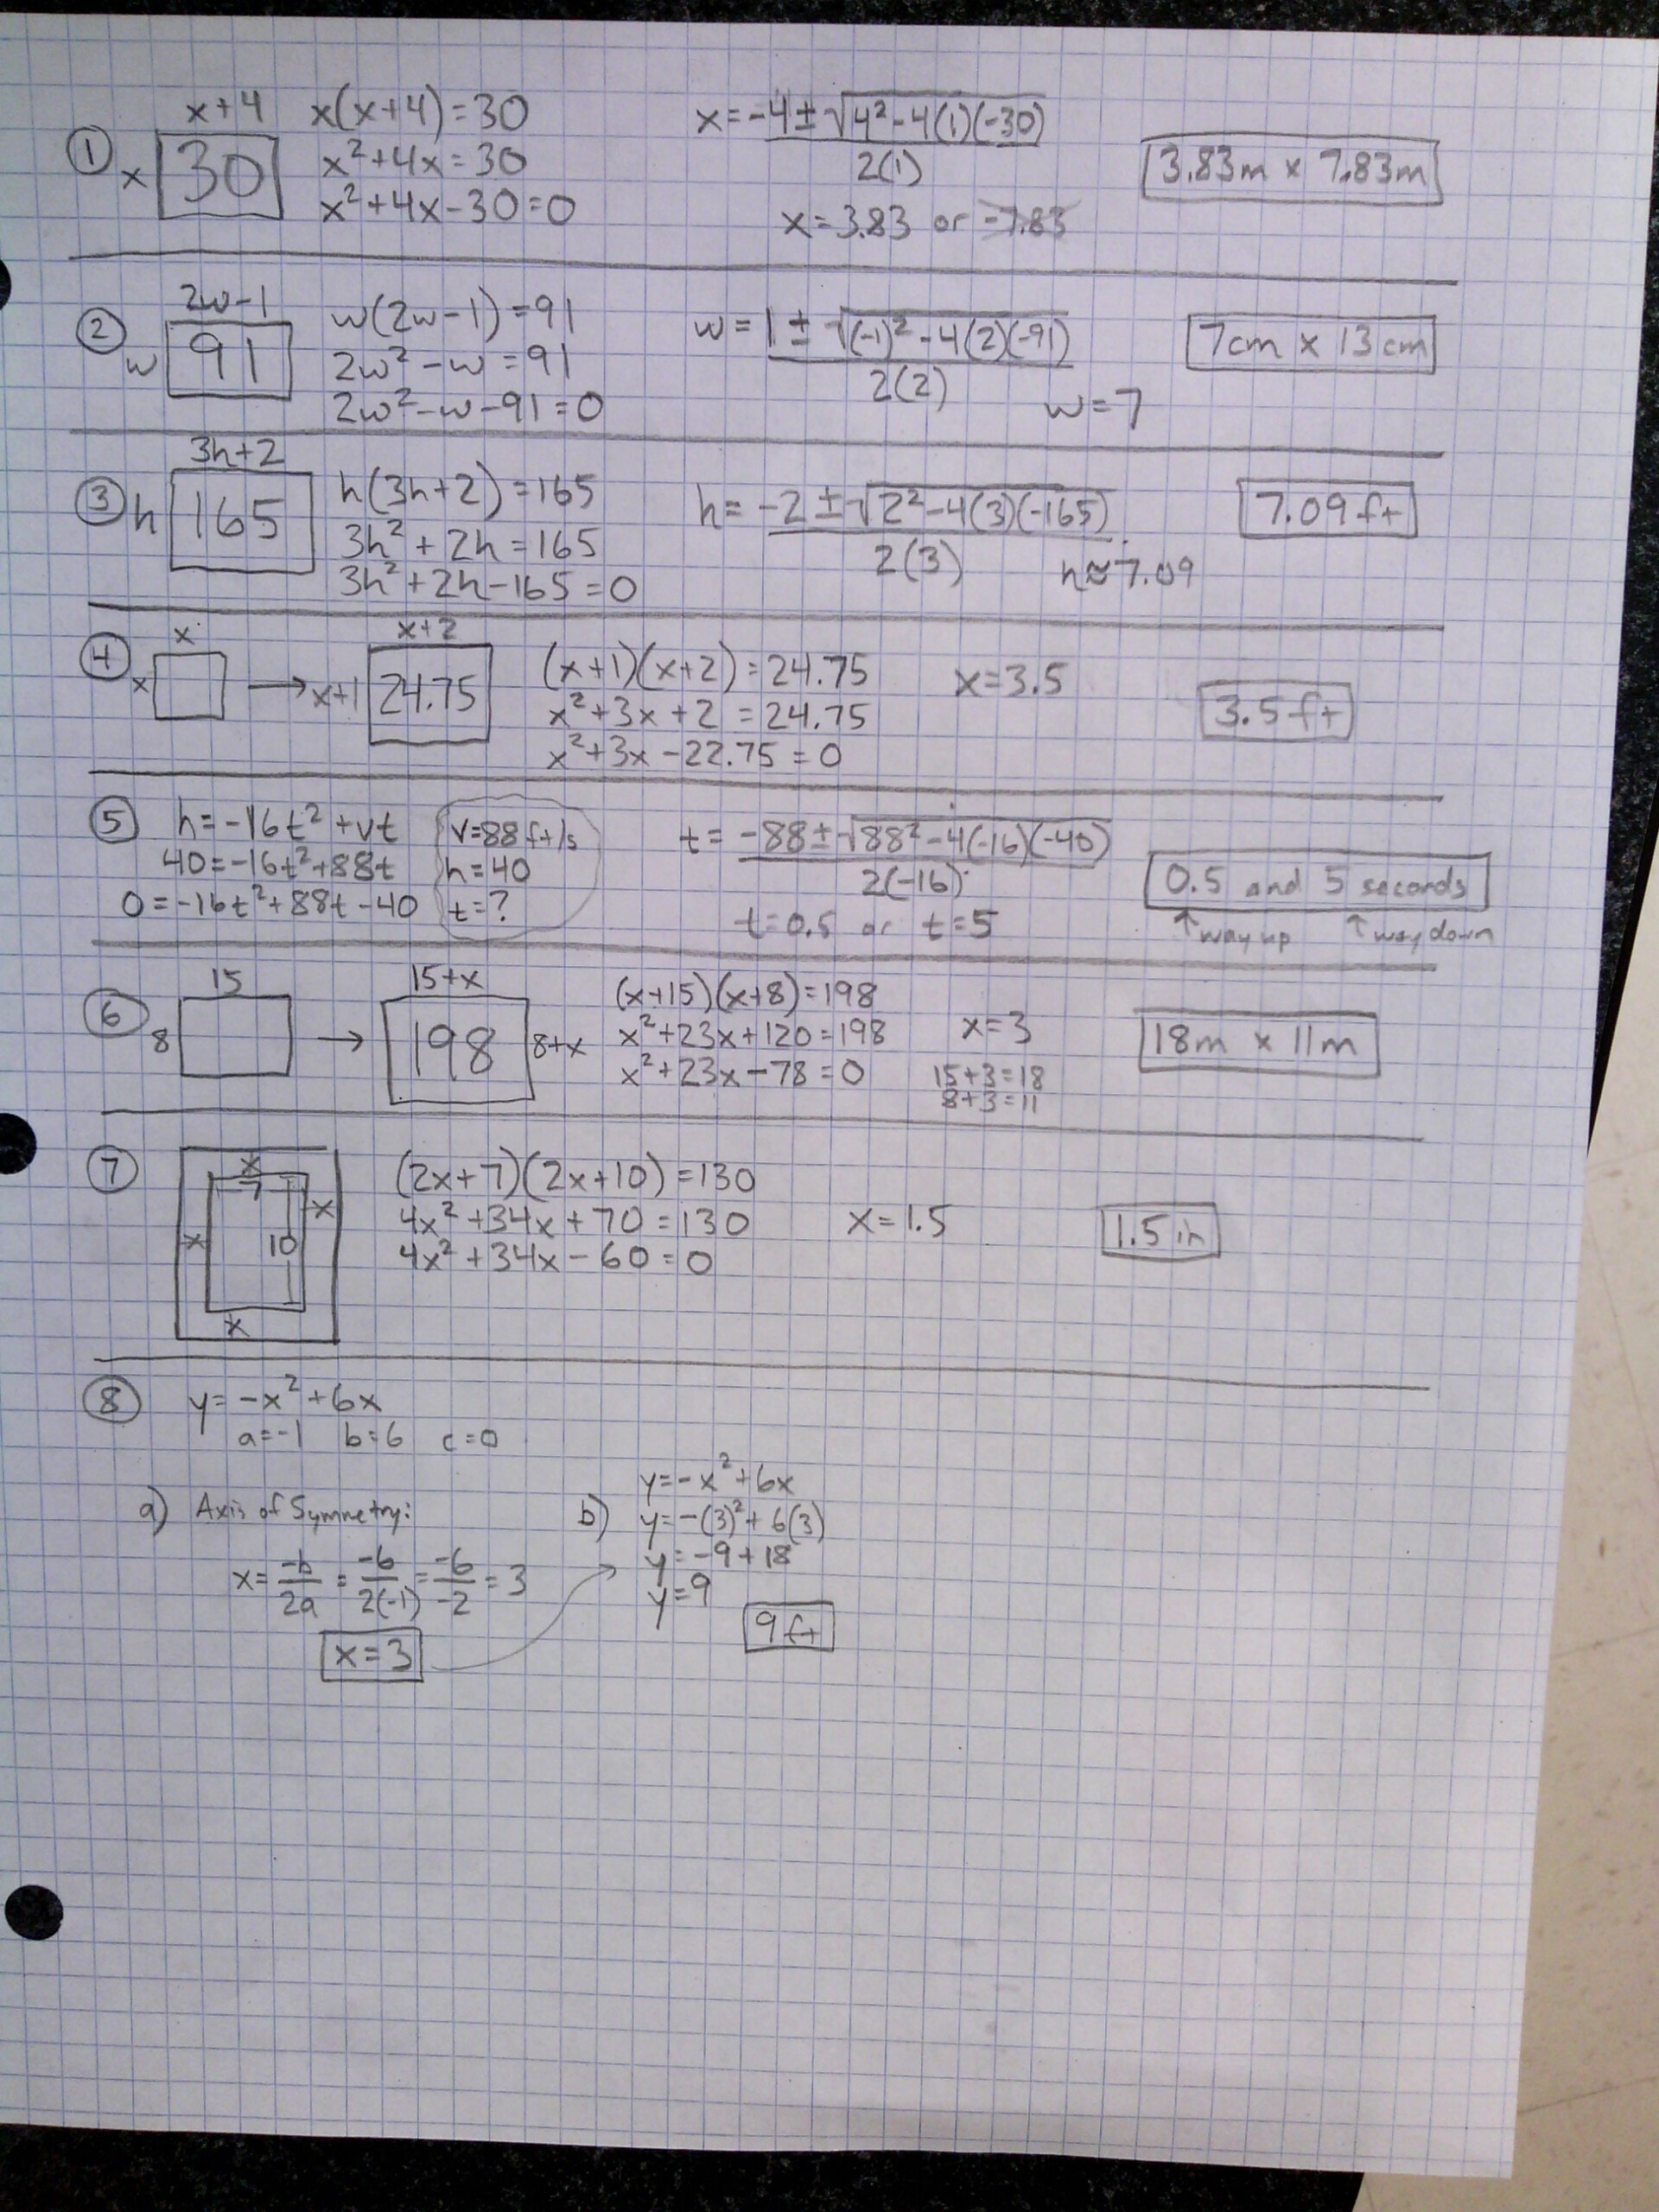 ① x+4 x(x+4)=30
x 30 x²+4x=30
x²+4x-30=0
x=-4±√4²-4(1)(-30)
2(1)
x=3.83 or -7.83
3.83m x 7.83m
② 2w-1 w(2w-1)=91
w 91 2w²-w=91
2w²-w-91=0
w=1±√(-1)²-4(2)(-91)
2(2)
w=7
7cm x 13cm
③ 3h+2 h(3h+2)=165
h 165 3h²+2h=165
3h²+2h-165=0
h=-2±√2²-4(3)(-165)
2(3)
h≈7.09
7.09ft
④ x
x → x+2
x+1 24.75
(x+1)(x+2)=24.75
x²+3x+2=24.75
x²+3x-22.75=0
x=3.5
3.5ft
⑤ h=-16t²+vt
40=-16t²+88t
0=-16t²+88t-40
v=88ft/s
h=40
t=?
t=-88±√88²-4(-16)(-40)
2(-16)
t=0.5 or t=5
0.5 and 5 seconds
↑way up ↑way down
⑥ 15
8 → 15+x
198 8+x
(x+15)(x+8)=198
x²+23x+120=198
x²+23x-78=0
x=3
15+3=18
8+3=11
18m x 11m
⑦ x
7
x
x 10
x
(2x+7)(2x+10)=130
4x²+34x+70=130
4x²+34x-60=0
x=1.5
1.5in
⑧ y=-x²+6x
a=-1 b=6 c=0
a) Axis of Symmetry:
x=-b/2a=-6/2(-1)=-6/-2=3
x=3
b) y=-x²+6x
y=-(3)²+6(3)
y=-9+18
y=9
9ft